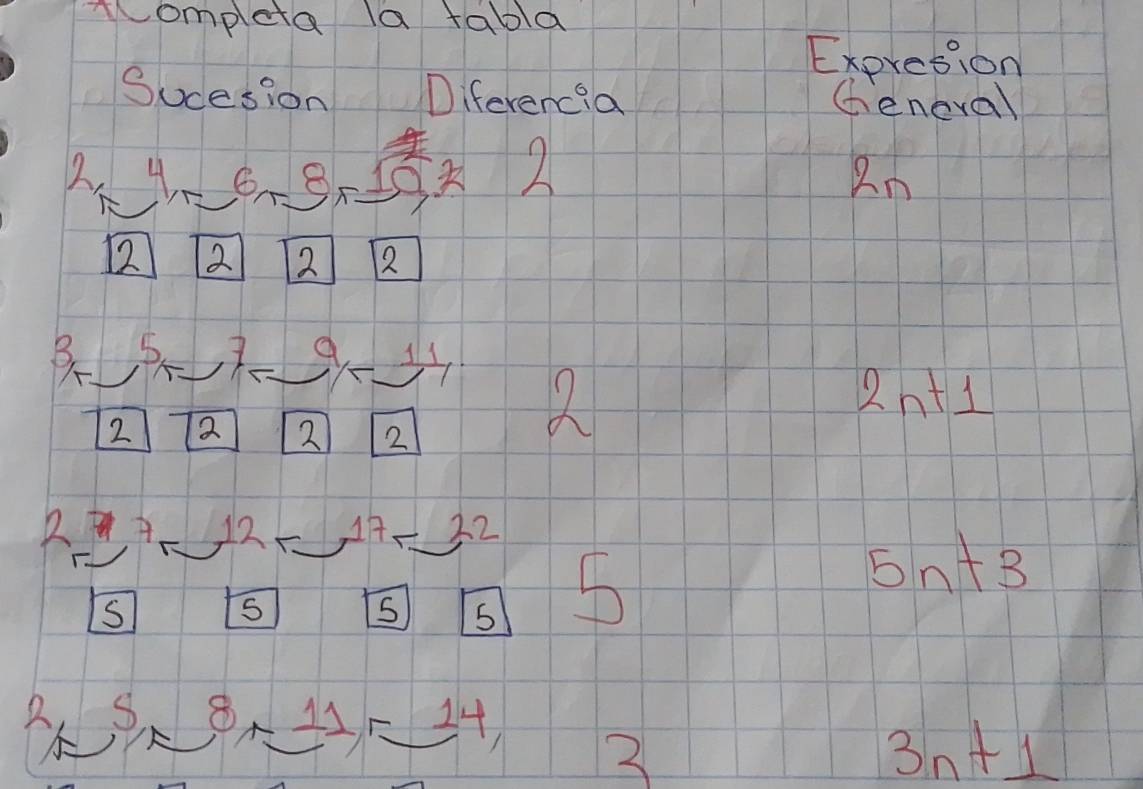 Completa la tabla
Expresion
Sucesion Diferencia General
2, 4, 6, 8, 10, 2 2n
2 2 2 2
3, 5, 7, 9, 11, 2 2n+1
2 2 2 2
2 7 12 17 22 5 5n+3
5 5 5 5
2, 5, 8, 11, 14, 3 3n+1